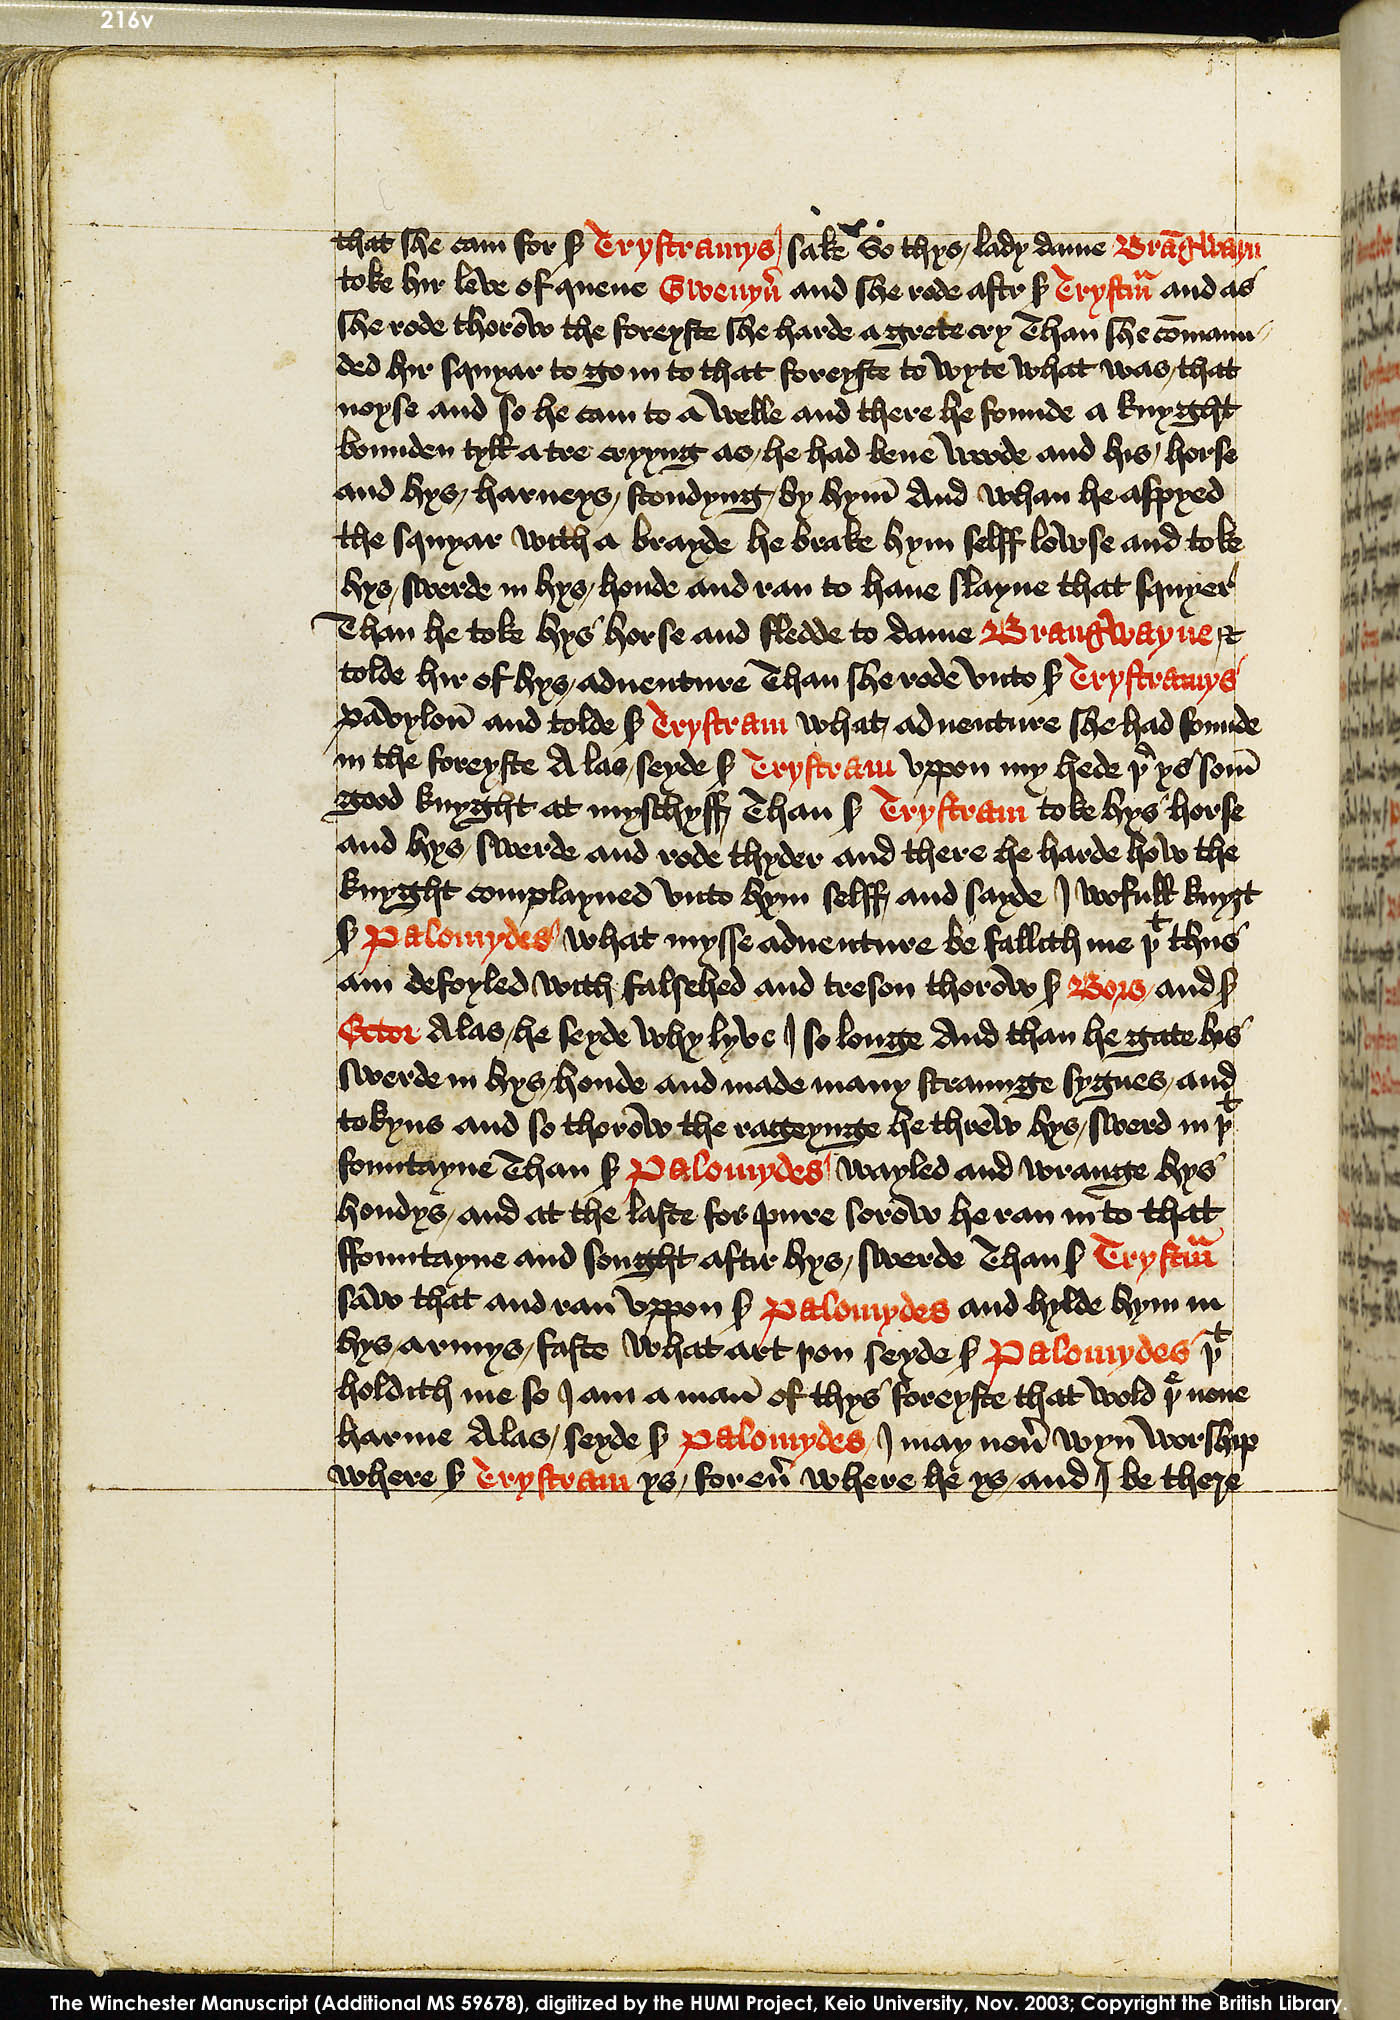 216v
that she cam for ẜ Trystramys sake So thys lady dame Brāgwayn
toke hir leve of quene Gwenyu̅ and she rode aftr ẜ Trystm̅ and as
she rode thorow the foreyste she harde a grete cry Than she cōmaun-
ded hir squyar to go in to that foreyste to wyte what was that
noyse and so he cam to a welle and there he founde a knyght
bounden tyll a tre cryyng as he had bene woode and his horse
and hys harneys stondyng by hym̄ And whan he aspyed
the squyar with a brayde he brake hym selff lowse and toke
hys swerde in hys honde and ran to haue slayne that squyer
Than he toke hys horse and fledde to dame Brangwayne &
tolde hir of hys aduenture Than she rode vnto ẜ Trystramys
pavylon̄ and tolde ẜ Trystram what adventure she had founde
in the foreyste Alas seyde ẜ Trystram vppon my hede þʳ ys som̄
good knyght at myschyff Than ẜ Trystram toke hys horse
and hys swerde and rode thyder and there he harde how the
knyght complayned vnto hym selff and sayde I wofull knygt
ẜ Palomydes what mysse aduenture be fallith me þᵗ thus
am defoyled with falsehed and treson thorow ẜ Bors and ẜ
Ector Alas he seyde why lyve I so longe And than he gate his
swerde in hys honde and made many straunge sygnes and
tokyns and so thorow the rageynge he threw hys swerd in þᵗ
fountayne Than ẜ Palomydes wayled and wrange hys
hondys and at the laste for pure sorow he ran in to that
ffountayne and sought aftir hys swerde Than ẜ Trystm̅
saw that and ran vppon ẜ Palomydes and hylde hym in
hys armys faste What art þou seyde ẜ Palomydes þᵗ
holdith me so I am a man̄ of thys foreyste that wold þᵉ none
harme Alas seyde ẜ Palomydes I may neu̅ wyn̄ worship
where ẜ Trystram ys for eu̅ where he ys and I be there
The Winchester Manuscript (Additional MS 59678), digitized by the HUMI Project, Keio University, Nov. 2003; Copyright the British Library.